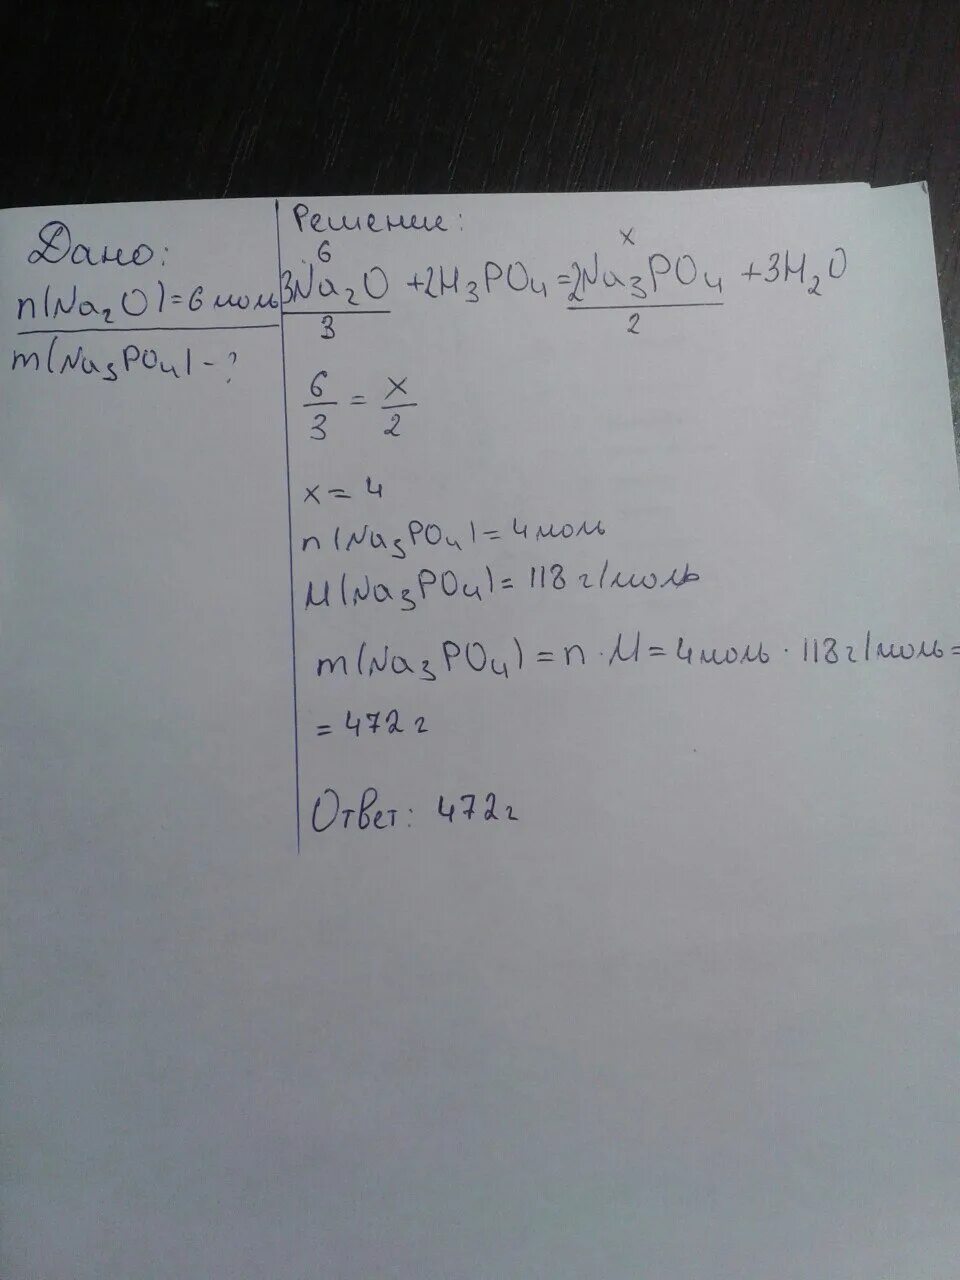 Дано:
n(Na₂O)=6 моль
m(Na₃PO₄)-?
Решение:
6 x
3Na₂O +2H₃PO₄=2Na₃PO₄ +3H₂O
3 2
6/3 = x/2
x = 4
n(Na₃PO₄)=4моль
M(Na₃PO₄)= 118 г/моль
m(Na₃PO₄)=n·M=4моль·118г/моль=
=472г
Ответ: 472г